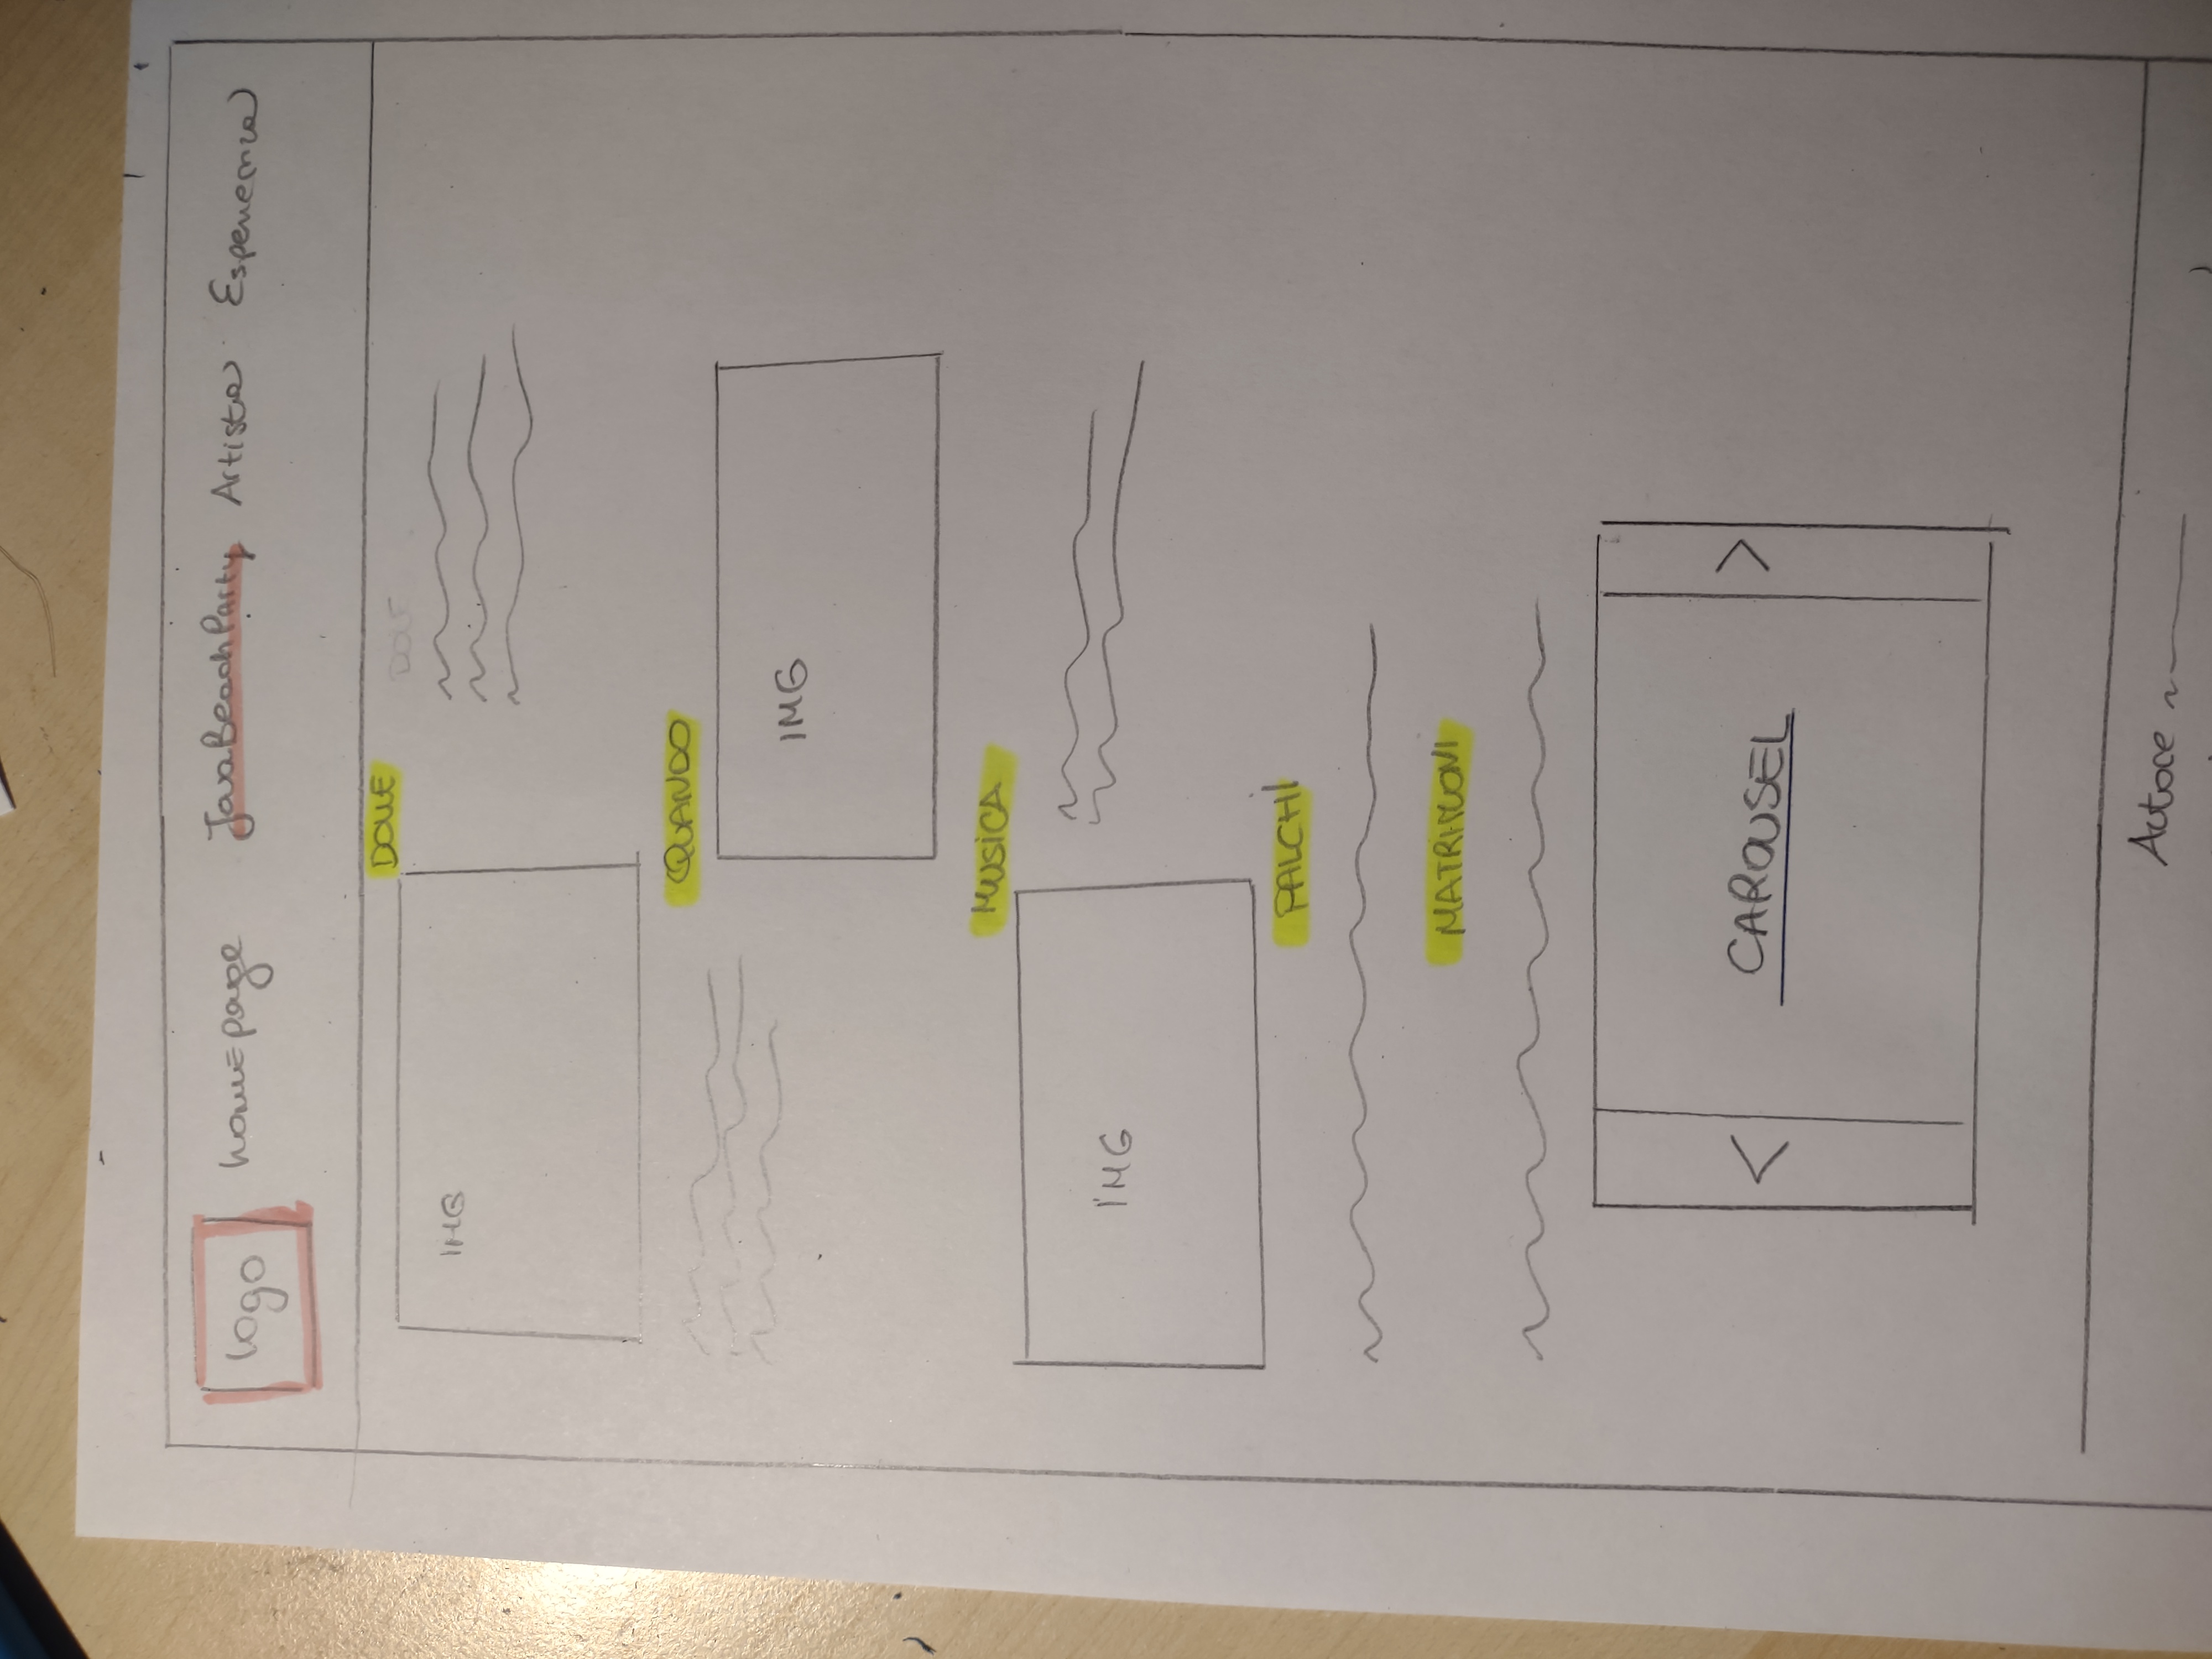 logo homepage JavaBeachParty Artista Esperienza
DOVE
DOVE
IMG
QUANDO
IMG
MUSICA
IMG
PALCHI
MATRIMONI
< CAROUSEL >
Autore